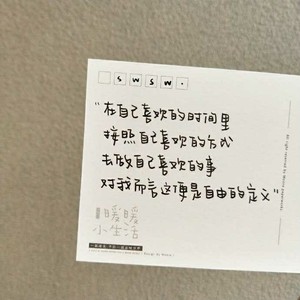 SWSW.
“在自己喜欢的时间里
按照自己喜欢的方式
去做自己喜欢的事
对我而言这便是自由的定义”
暖暖
小生活